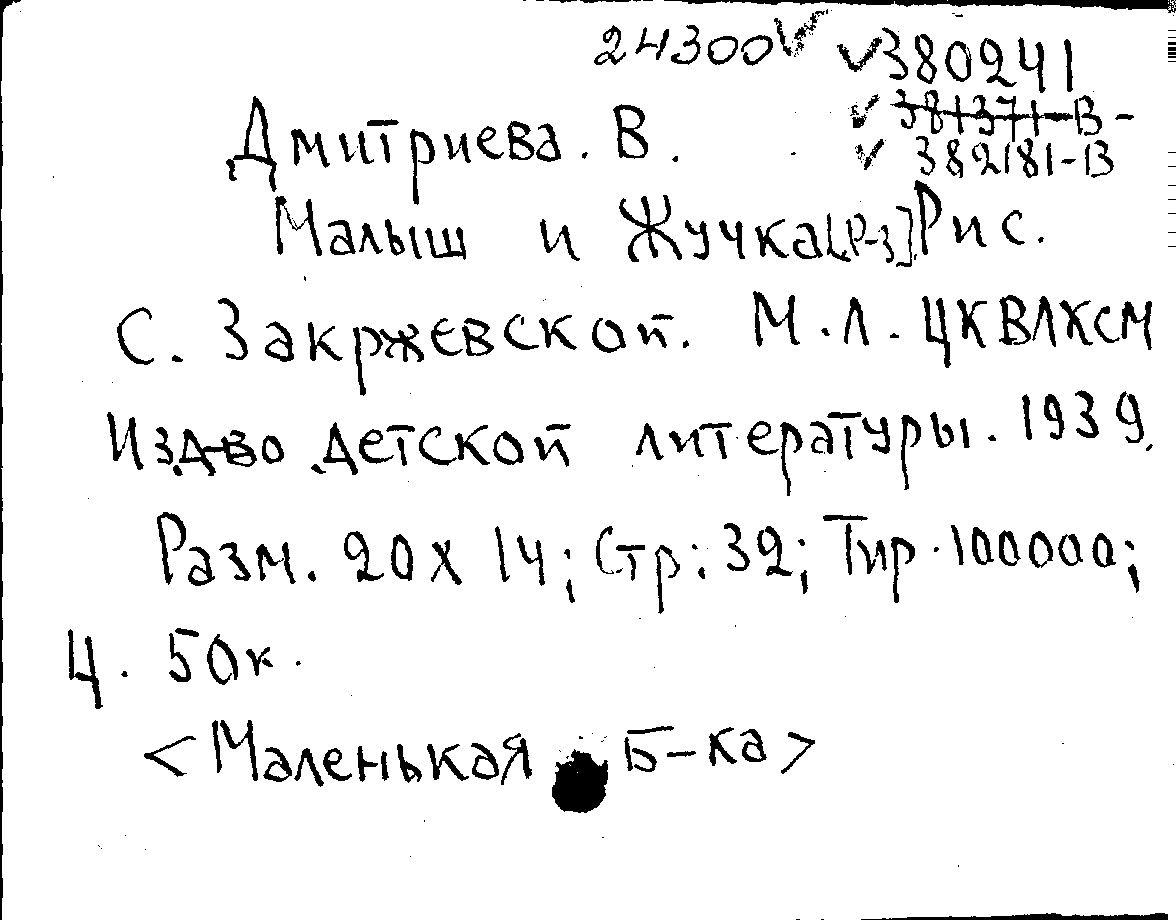 24300 380241
381371-В-
382181-В
Дмитриева. В.
Малыш и Жучка[Р-з]Рис.
С. Закржевской. М.Л. ЦКВЛКСМ
Изд-во детской литературы. 1939.
Разм. 20х14; Стр: 32; Тир. 100000;
Ц. 50к.
<Маленькая Б-ка>